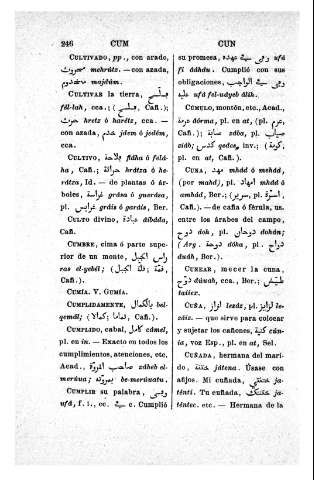 246 CUM CUN
CULTIVADO, pp., con arado,
محروث mehrútz. — con azada,
مخدوم majdúm.
CULTIVAR la tierra, فلح
fál-lah, cca.; (فلح, Cafi.).
حرث hretz ó harétz, cca. —
con azada, خدم jdem ó jodém,
cca.
CULTIVO, فلاحة fláha ó falá-
ha, Caf.; حراثة hrátza ó ha-
rátza, Id. — de plantas ó ár-
boles, غراسة grása ó guaráça,
pl. غرايس gráis ó garáis, Ber.
CULTO divino, عبادة áibádda,
Caf.
CUMBRE, cima ó parte supe-
rior de un monte, راس الجبل
ras el-gebél; (قمة الجبل,
Cafi.).
CUMÍA. V. GUMÍA.
CUMPLIDAMENTE, بالكمال bel-
quemál; (كمالا; تماما, Cafi.).
CUMPLIDO, cabal, كامل cámel,
pl. en ín. — Exacto en todos los
cumplimientos, atenciones, etc.
Acad., صاحب المروة záheb el-
merúua; بمروته be-merúuatu.
CUMPLIR su palabra, وفى
ufá, f. i., cc. ب — Cumplió
su promesa, وفى عهده ufá
fi áâhdu. Cumplió con sus
obligaciones, وفى الواجب
عليه ufá fel-udyeb álíh.
CÚMULO, monton, etc., Acad.,
عرمة dórma, pl. en at, (pl. عرم,
Caf.); صابة zába, pl. صياب
ziáb; كدس qedce, inv.; (كومة,
pl. en at, Caf.).
CUNA, مهد mhád ó mehád,
(por mahd), pl. امهاد mhád ó
amhád, Ber.; (سرير, pl. اسرة,
Caf.). — de caña ó férula, us.
entre los árabes del campo,
دوح doh, pl. دوحان dohán;
(Arg. دوحة dóha, pl. دواح
duáh, Ber.).
CUNEAR, mecer la cuna,
دوح dúuah, cca., Ber.; طيش
taiiex.
CUÑA, لزاز lezdz, pl. لزايز le-
záiz. — que sirve para colocar
y sujetar los cañones, كنية cún-
ia, voz Esp., pl. en at, Sel.
CUÑADA, hermana del mari-
do, ختنة játena. Úsase con
afijos. Mi cuñada, ختنتي ja-
ténti. Tu cuñada, ختنتك ja-
téntec. etc. — Hermana de la